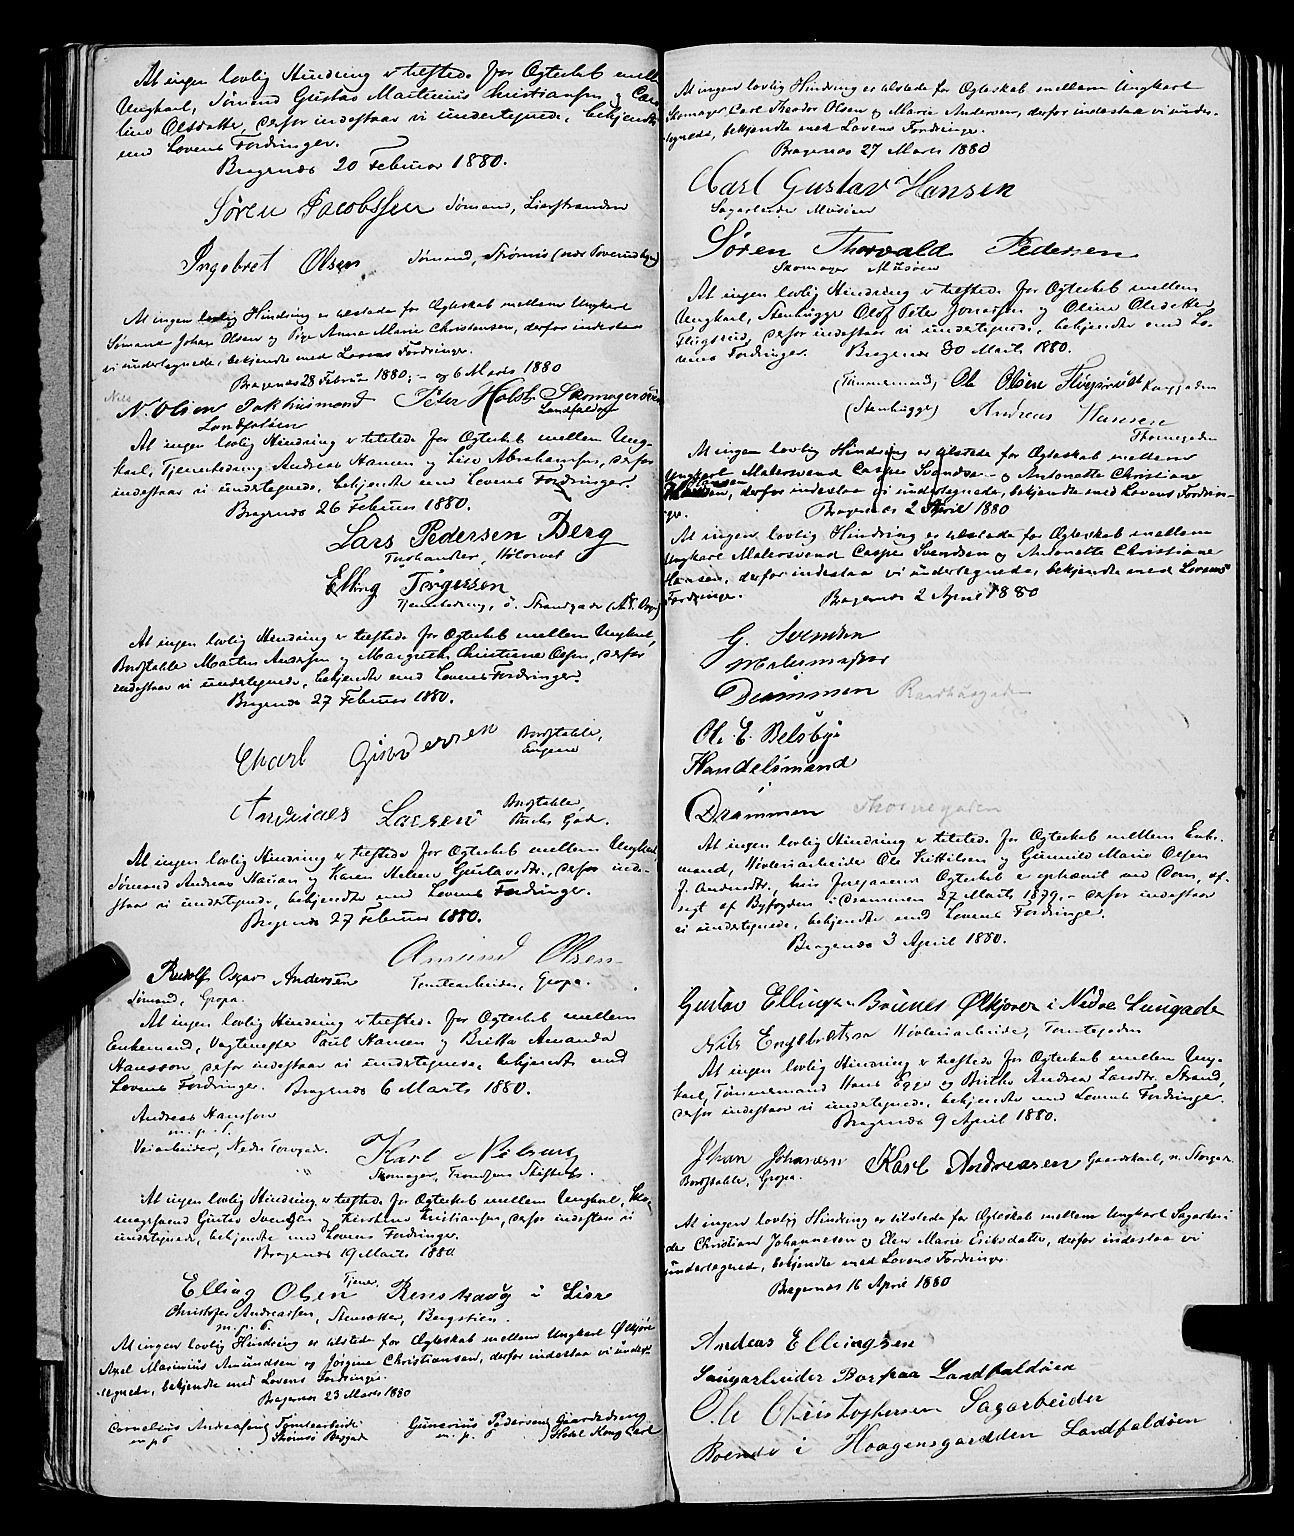 At ingen lovlig Hindring er tilstede for Ægteskab mell
Ungkarl, Sømand Gustav Martinius Christiansen og Caro
line Olsdatter, derfor indestaar vi undertegnede, bekjendte
med Lovens Fordringer.
Bragernes 20 Februar 1880.
Søren Jacobssen Sømand, Lierstranden
Ingebret Olsen Sømand, Strømsø
At ingen lovlig Hindring er tilstede for Ægteskab mellem Ungkarl
Sømand Johan Olsen og Pige Anna Marie Christensen, derfor indestaa
vi undertegnede, bekjendte med Lovens Fordringer.
Bragernes 28 Februar 1880, - og 6 Marts 1880
Nils
N. Olsen Peter Holst Skomager
Landfaløen Landfaløen
At ingen lovlig Hindring er tilstede for Ægteskab mellem Ung-
karl, Andreas Hansen og Lise Abrahamsen, derfor
indestaar vi undertegnede, bekjendte med Lovens Fordringer.
Bragernes 26 Februar 1880.
Lars Pedersen Berg
Elling Torgersen
At ingen lovlig Hindring er tilstede for Ægteskab mellem Ungkarl,
Bordtabler Martin Andersen og Margrethe Christine Olsen, derfor
indestaar vi undertegnede, bekjendte med Lovens Fordringer.
Bragernes 27 Februar 1880.
Charl Gundersen Bordtabler,
Engene
Andreas Larsen Bordtabler
At ingen lovlig Hindring er tilstede for Ægteskab mellem Ungkarl
Sømand Andreas Hansen og Karen Helene Gustavsdtr., derfor inde-
staar vi undertegnede, bekjendte med Lovens Fordringer.
Bragernes 27 Februar 1880.
Rudolf Oscar Andersen Amund Olsen
Sømand, Gropa. Tomtearbeider, Gropa.
At ingen lovlig Hindring er tilstede for Ægteskab mellem
Enkemand, Vagtmester Paul Hansen og Britta Amanda
Hansson, derfor indestaar vi undertegnede, bekjendte med
Lovens Fordringer. Bragernes 6 Marts 1880.
Andreas Hanssen
m.p.f.
Veiarbeider, Nedre Torvgad.
Karl Nilsen
Skomager,
At ingen lovlig Hindring er tilstede for Ægteskab mellem Ungkarl, Sko-
magersvend Gustav Svendsen og Kirstine Kristiansen, derfor indestaar vi
undertegnede, bekjendte med Lovens Fordringer.
Bragernes 19 Marts 1880
Elling Olsen Tjener, i Lier
Christofer Andreassen, Bergstien
m.p.f.
At ingen lovlig Hindring er tilstede for Ægteskab mellem Ungkarl Ølkjører
Axel Marinius Amundsen og Jørgine Christiansen, derfor indestaa vi under-
tegnede, bekjendte med Lovens Fordringer.
Bragernes 23 Marts 1880
Cornelius Andreasen Tomtearbeider Gunerius Pedersen Gaardsdreng
m.p.f. Strømsø m.p.f. Hotel Kong Carl
At ingen lovlig Hindring er tilstede for Ægteskab mellem Ungkarl
Skomager Carl Theodor Olsen og Marie Andersen, derfor indestaa vi under-
tegnede, bekjendte med Lovens Fordringer.
Bragernes 27 Marts 1880
Carl Gustav Hansen
Sagarbeider
Søren Thorvald Pedersen
Skomager
At ingen lovlig Hindring er tilstede for Ægteskab mellem
Ungkarl, Stenhugger Olof Peter Jonassen og Oline Olsdatter
derfor indestaar vi undertegnede, bekjendte med Lo-
vens Fordringer. Bragernes 30 Marts 1880.
(Tømmermand) Ole Olsen Kongegaden
(Stenhugger) Andreas Hansen
Thornegaden
At ingen lovlig Hindring er tilstede for Ægteskab mellem
Ungkarl Malersvend Casper Svendsen og Antonette Christiane
Hansen
Hansen, derfor indestaa vi undertegnede, bekjendte med Lovens Fordrin-
ger.
Bragernes 2 April 1880
At ingen lovlig Hindring er tilstede for Ægteskab mellem
Ungkarl Malersvend Casper Svendsen og Antonette Christiane
Hansen, derfor indestaa vi undertegnede, bekjendte med Lovens
Fordringer.
Bragernes 2 April 1880
G. Svendsen
Malermester
Drammen Raadhusgaden
Ole E. Belsbye
Handelsmand
Drammen Thornegaden
At ingen lovlig Hindring er tilstede for Ægteskab mellem Enke-
mand, Høvleriarbeider Ole Kittilsen og Gunnild Marie Olsen
f. Andersdtr., hvis forrige Ægteskab er ophævet ved Dom, af-
sagt af Byfogden i Drammen 27 Marts 1879. - derfor indestaar
vi undertegnede, bekjendte med Lovens Fordringer.
Bragernes 3 April 1880.
Gustav Ellingsen Brunes Ølkjører i Nedre Langgade
Nils Engebretsen Høvleriarbeider, Tomtegaden
At ingen lovlig Hindring er tilstede for Ægteskab mellem Ung-
karl, Tømmermand Hans Egge og Birthe Andrea Larsdtr. Strand,
derfor indestaar vi undertegnede, bekjendte med Lovens Fordringer.
Bragernes 9 April 1880.
Johan Johansen Karl Andreasen Gaardskarl, n. Storgad.
Bordtabler, Gropa.
At ingen lovlig Hindring er tilstede for Ægteskab mellem Ungkarl Sagarbei-
der Christian Johannesen og Elen Marie Eriksdatter, derfor indestaa vi
undertegnede, bekjendte med Lovens Fordringer.
Bragernes 16 April 1880
Andreas Ellingsen
Saugarbeider Bor paa Landfaldøen
Ole Christophersen Sagarbeider
Boende i Haagensgardden Landfaldøen